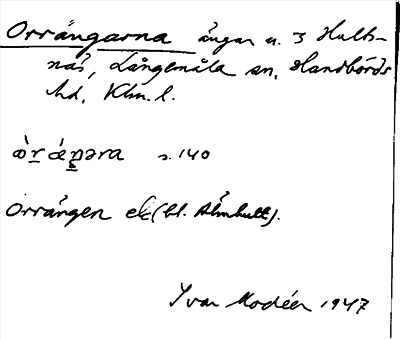 Orrängarna ängar u. 3 Hults-
näs, Långemåla sn, Handbörds
hd, Klm. l.
s. 140
Orrängen ek (bl. Älmhult).
Yvar Modéer 1947